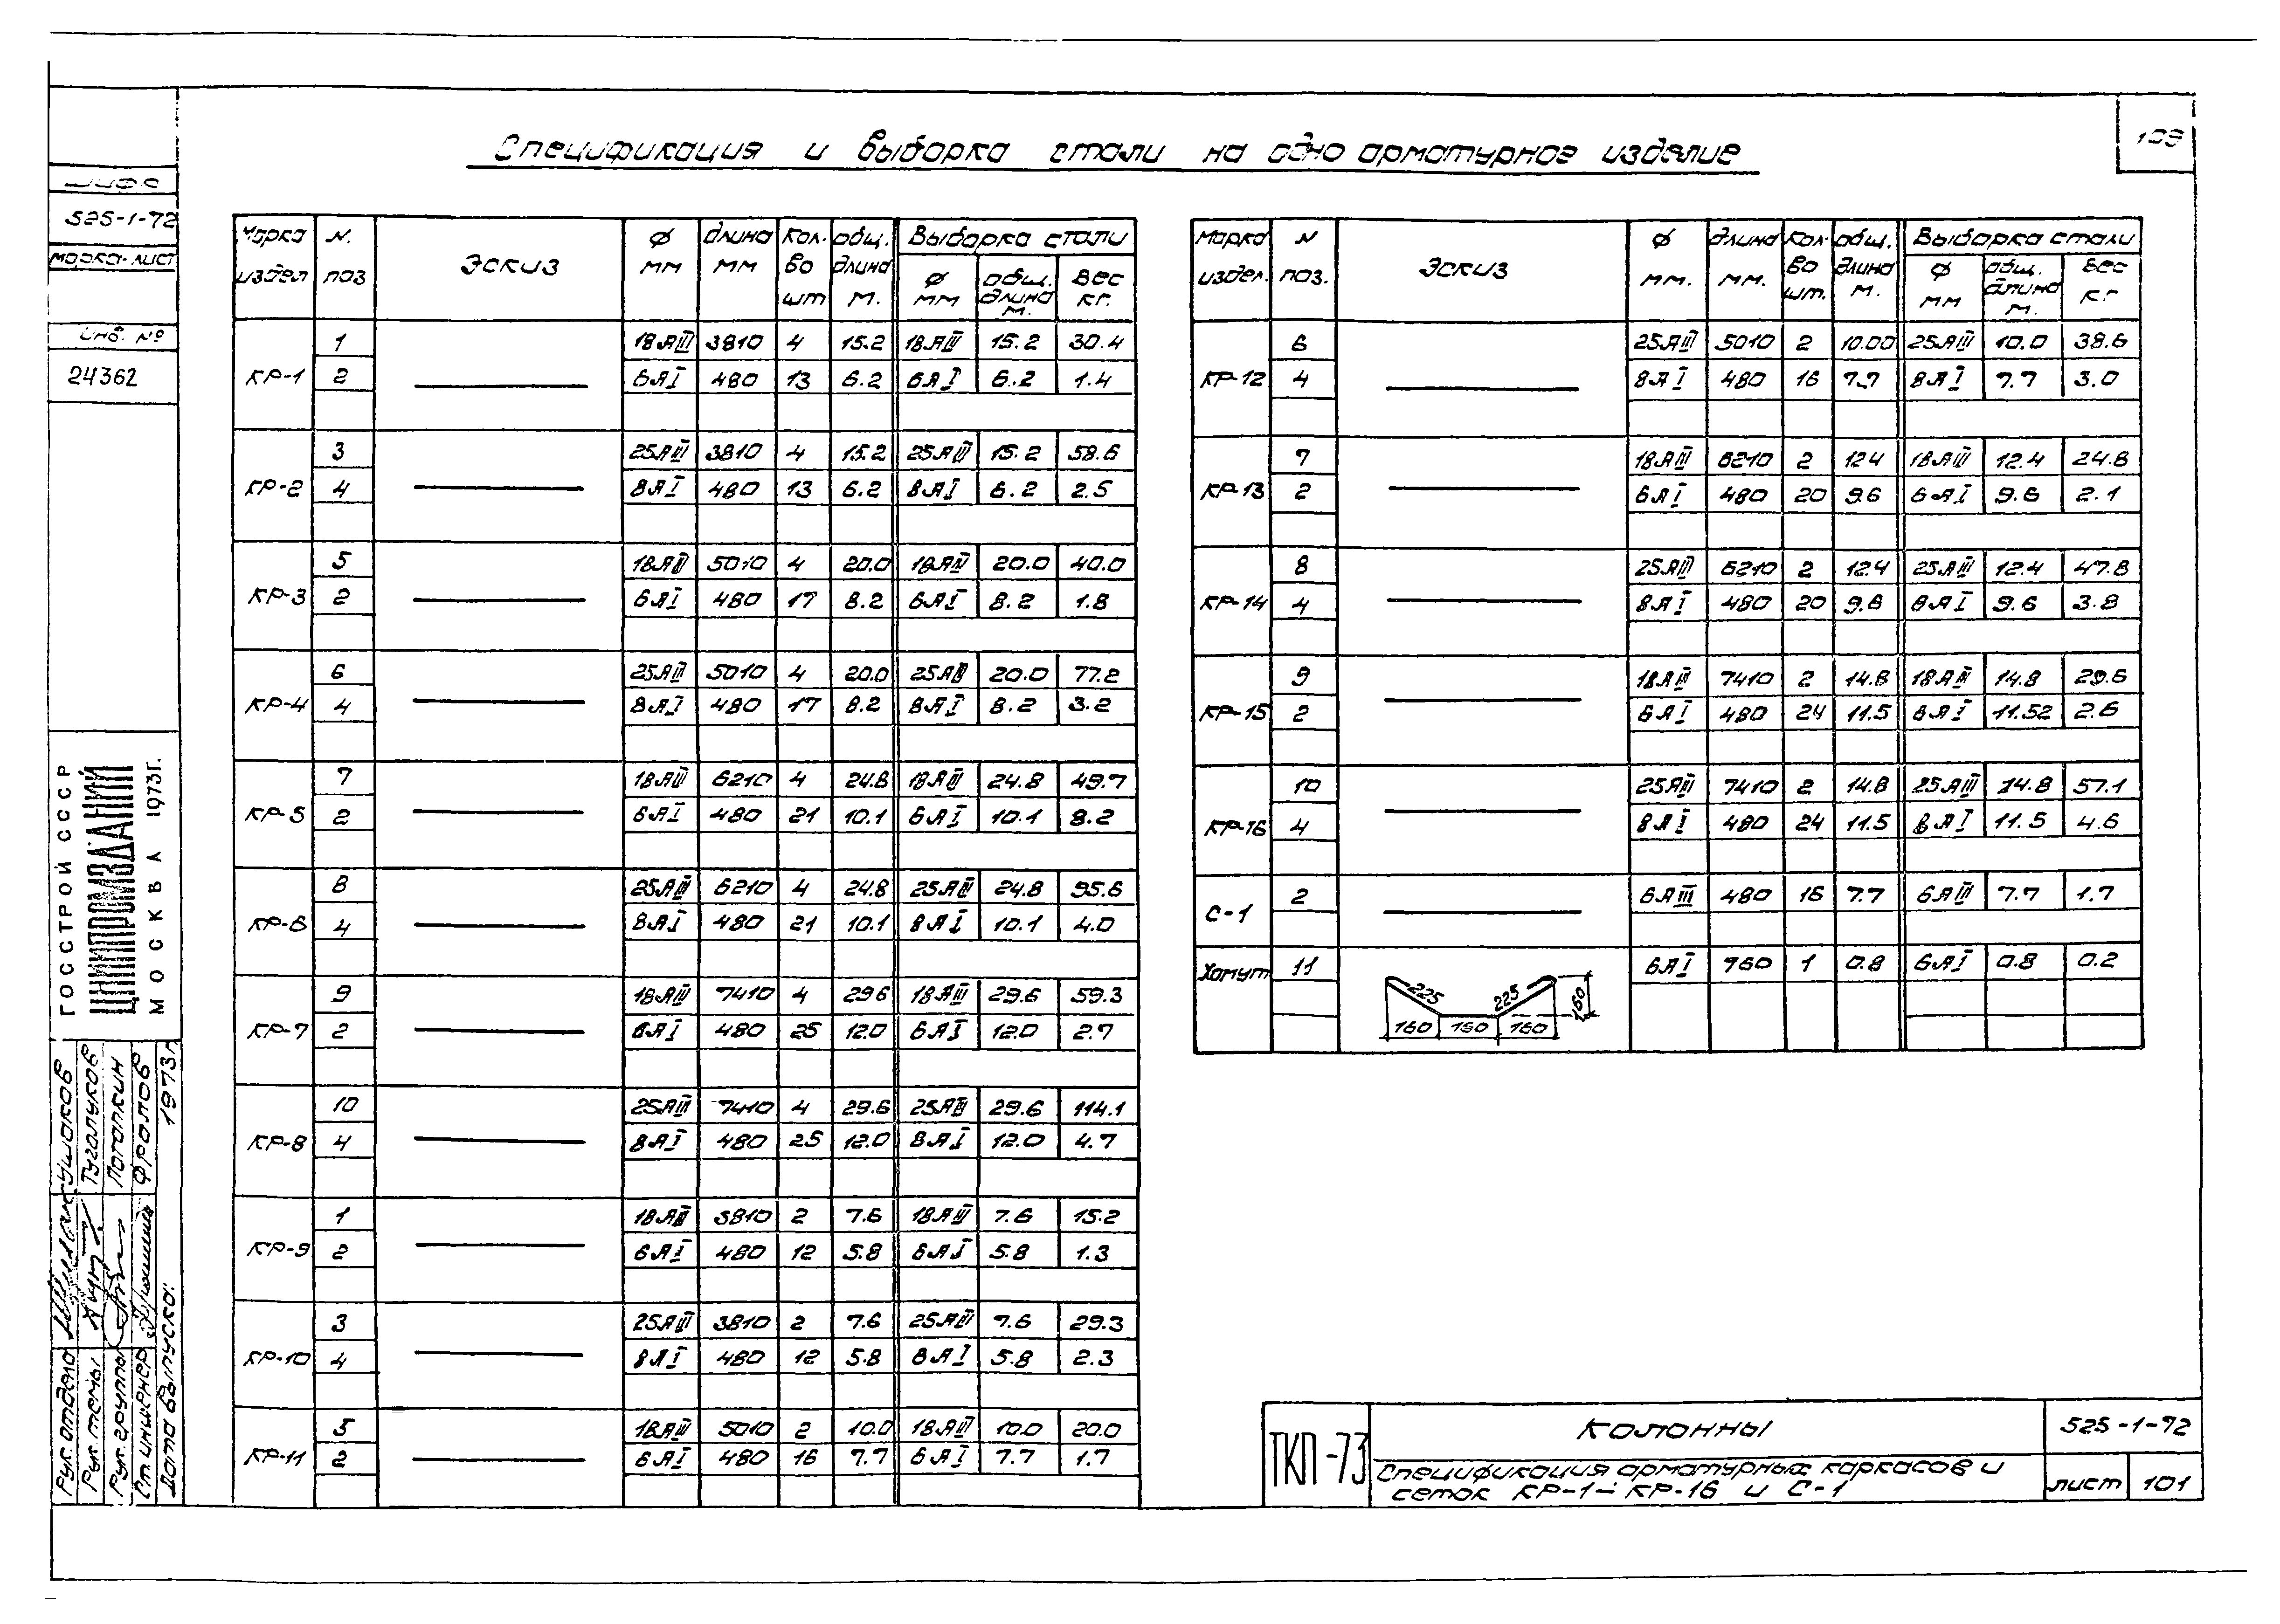 109
Спецификация и выборка стали на одно арматурное изделие
шифр
525-1-72
марка-лист
инв. №
24362
ГОССТРОЙ СССР
ЦНИИПРОМЗДАНИЙ
МОСКВА 1973г.
Рук. отдела Кушаков
Рук. темы Туголуков
Рук. группы Потапкин
Ст. инженер Фролов
Дата выпуска: 1973г.
Марка издел N. поз Эскиз Ф мм длина мм Кол-во шт общ. длина м. Выборка стали Ф мм общ. длина м. Вес кг.
КР-1 1 18АIII 3810 4 15.2 18АIII 15.2 30.4
2 6АI 480 13 6.2 6АI 6.2 1.4
КР-2 3 25АIII 3810 4 15.2 25АIII 15.2 58.6
4 8АI 480 13 6.2 8АI 6.2 2.5
КР-3 5 18АIII 5010 4 20.0 18АIII 20.0 40.0
2 6АI 480 17 8.2 6АI 8.2 1.8
КР-4 6 25АIII 5010 4 20.0 25АIII 20.0 77.2
4 8АI 480 17 8.2 8АI 8.2 3.2
КР-5 7 18АIII 6210 4 24.8 18АIII 24.8 49.7
2 6АI 480 21 10.1 6АI 10.1 8.2
КР-6 8 25АIII 6210 4 24.8 25АIII 24.8 95.6
4 8АI 480 21 10.1 8АI 10.1 4.0
КР-7 9 18АIII 7410 4 29.6 18АIII 29.6 59.3
2 6АI 480 25 12.0 6АI 12.0 2.7
КР-8 10 25АIII 7410 4 29.6 25АIII 29.6 114.1
4 8АI 480 25 12.0 8АI 12.0 4.7
КР-9 1 18АIII 3810 2 7.6 18АIII 7.6 15.2
2 6АI 480 12 5.8 6АI 5.8 1.3
КР-10 3 25АIII 3810 2 7.6 25АIII 7.6 29.3
4 8АI 480 12 5.8 8АI 5.8 2.3
КР-11 5 18АIII 5010 2 10.0 18АIII 10.0 20.0
2 6АI 480 16 7.7 6АI 7.7 1.7
Марка издел. N поз. Эскиз Ф мм. длина мм. Кол-во шт. общ. длина м. Выборка стали Ф мм общ. длина м. Вес кг
КР-12 6 25АIII 5010 2 10.00 25АIII 10.0 38.6
4 8АI 480 16 7.7 8АI 7.7 3.0
КР-13 7 18АIII 6210 2 124 18АIII 12.4 24.8
2 6АI 480 20 9.6 6АI 9.6 2.1
КР-14 8 25АIII 6210 2 12.4 25АIII 12.4 47.8
4 8АI 480 20 9.6 8АI 9.6 3.8
КР-15 9 18АIII 7410 2 14.8 18АIII 14.8 29.6
2 6АI 480 24 11.5 6АI 11.52 2.6
КР-16 10 25АIII 7410 2 14.8 25АIII 14.8 57.1
4 8АI 480 24 11.5 8АI 11.5 4.6
С-1 2 6АIII 480 16 7.7 6АIII 7.7 1.7
Хомут 11 6АI 760 1 0.8 6АI 0.8 0.2
225 225 160
160 160 160
ТКП-73
Колонны
525-1-72
Спецификация арматурных каркасов и
сеток КР-1÷КР-16 и С-1
лист 101